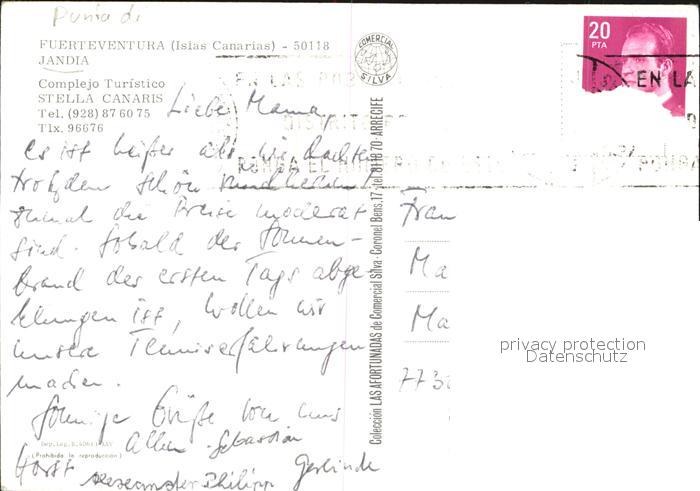 Punta de
FUERTEVENTURA (Islas Canarias) - 50118
JANDIA
Complejo Turístico
STELLA CANARIS
Tel. (928) 87 60 75
Tlx. 96676
COMERCIAL SILVA
20
PTA
EN LAS
EN LA
DISTRITO
PONGA EL NUMERO
Liebe Mama,
es ist heißer als wir dachten
trotzdem schön
zumal die Preise moderat
sind. Sobald der Sonnen-
brand der ersten Tage abge-
klungen ist, wollen wir
unsere Tenniserfahrungen
machen.
Sonnige Grüße von uns
Allen Sebastian
Horst Philipp Gerlinde
Dep. Leg. B.
(Prohibida la reproducción)
Colección LAS AFORTUNADAS de Comercial Silva - Coronel Bens, 17 - tel. 81 18 70 - ARRECIFE
Frau
Ma
Ma
773
privacy protection
Datenschutz